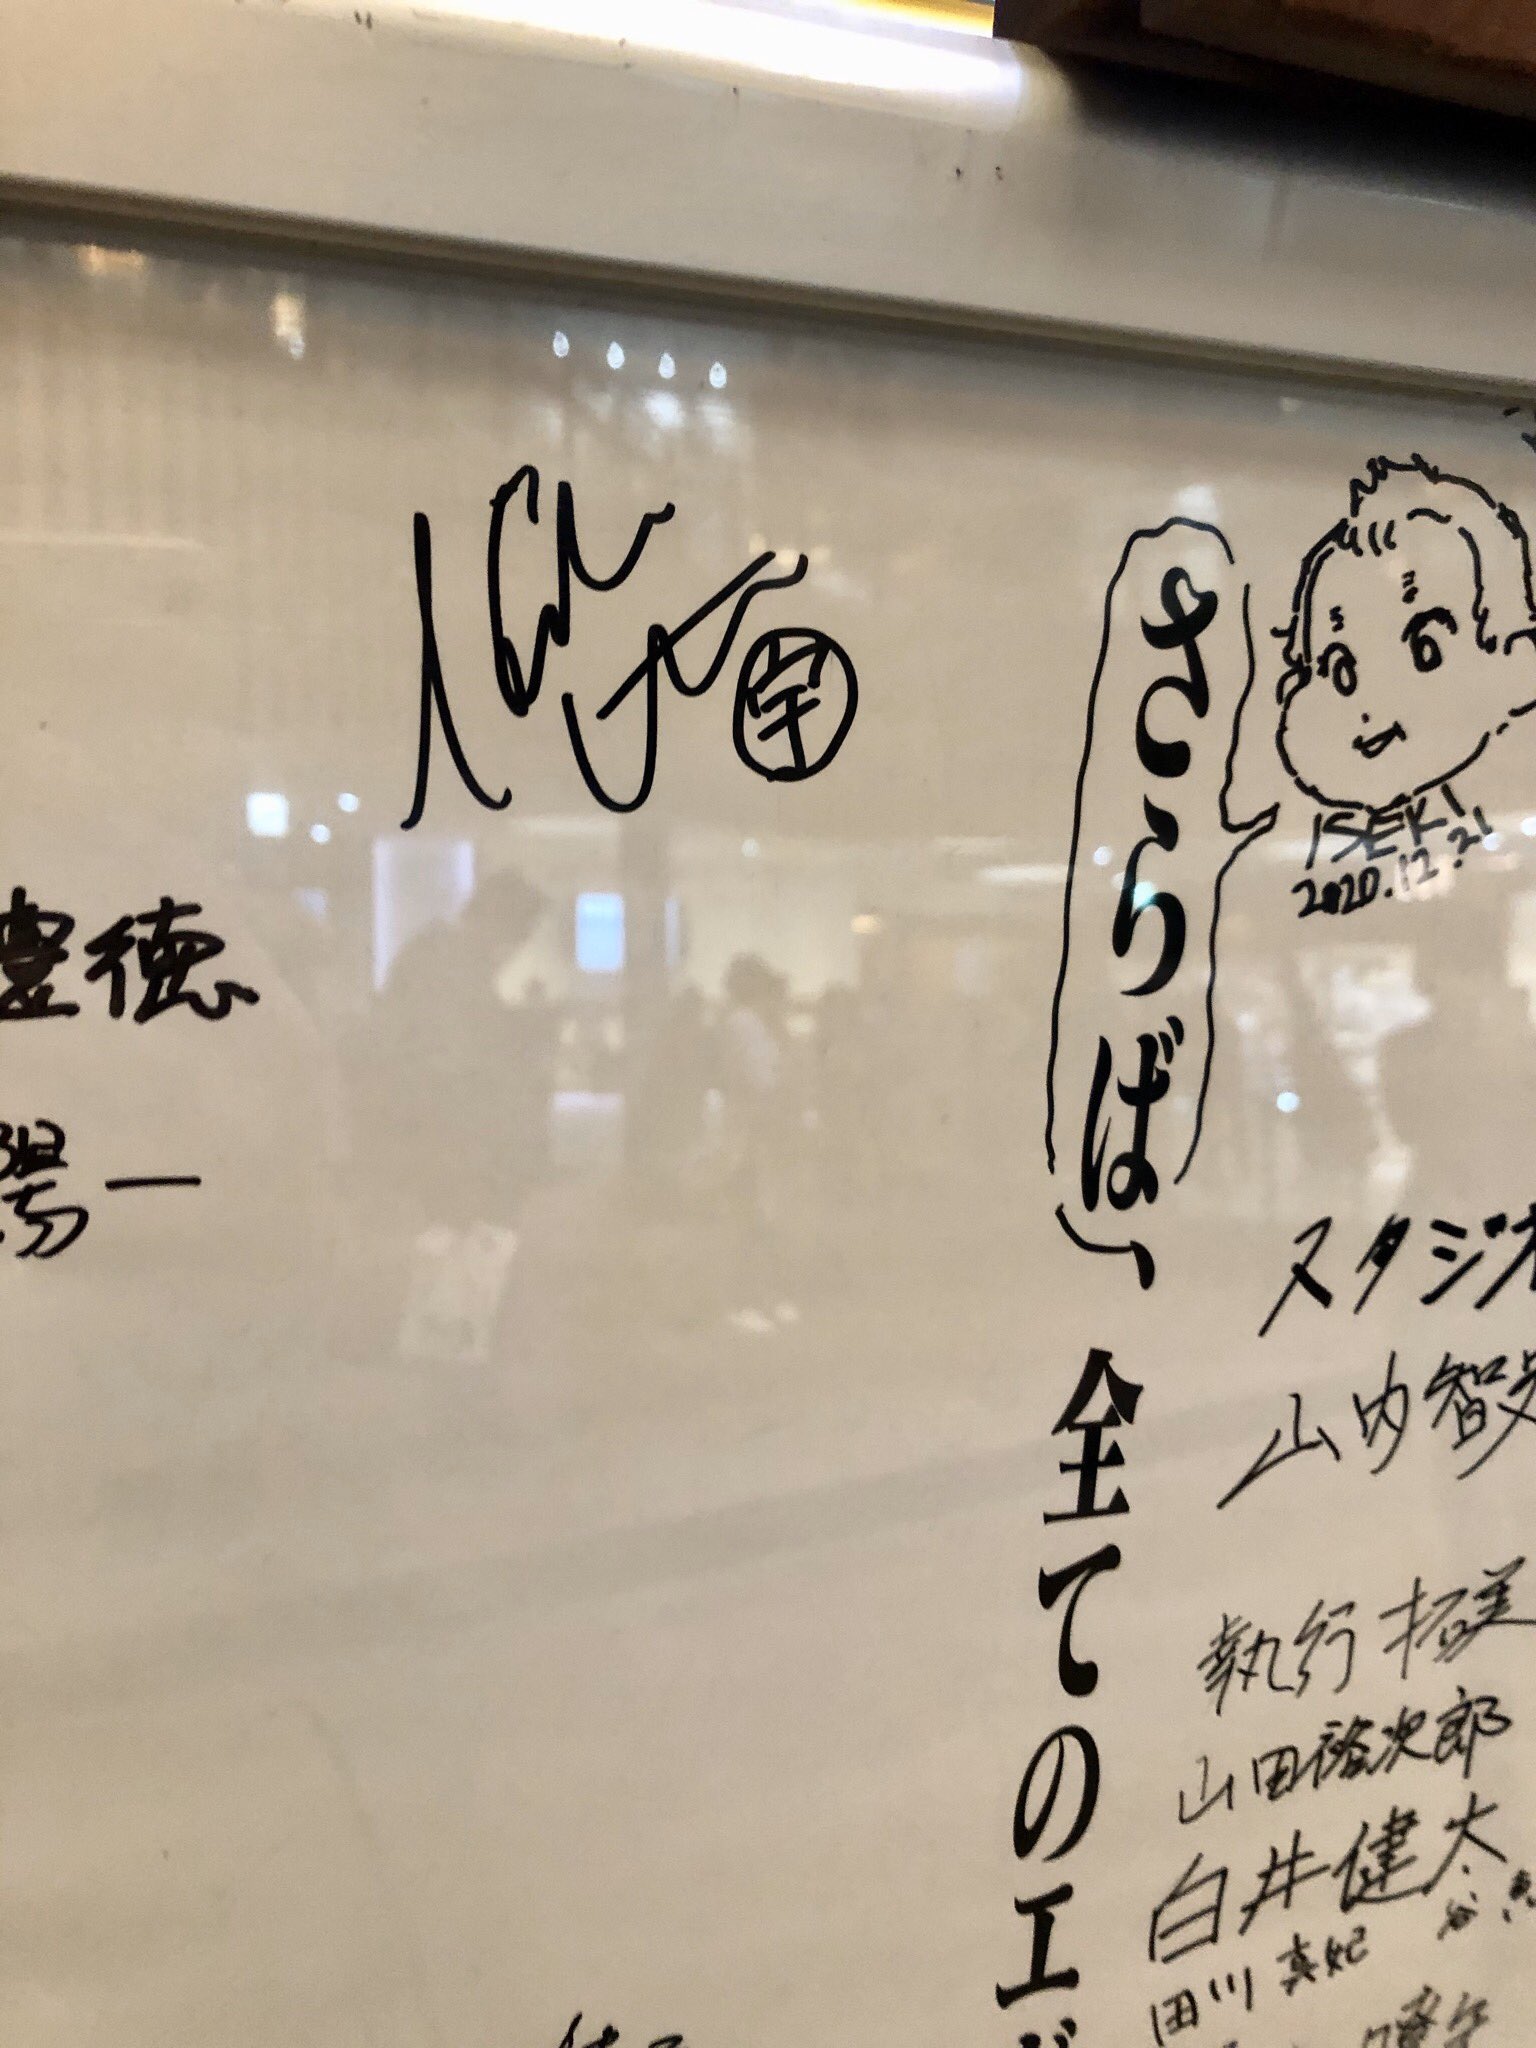 さらば、全てのエ
ISEKI
2020.12.21
スタジオ
山内智
執行 拓美
山田裕次郎
白井健太
田川 真妃
豊徳
陽一
宇